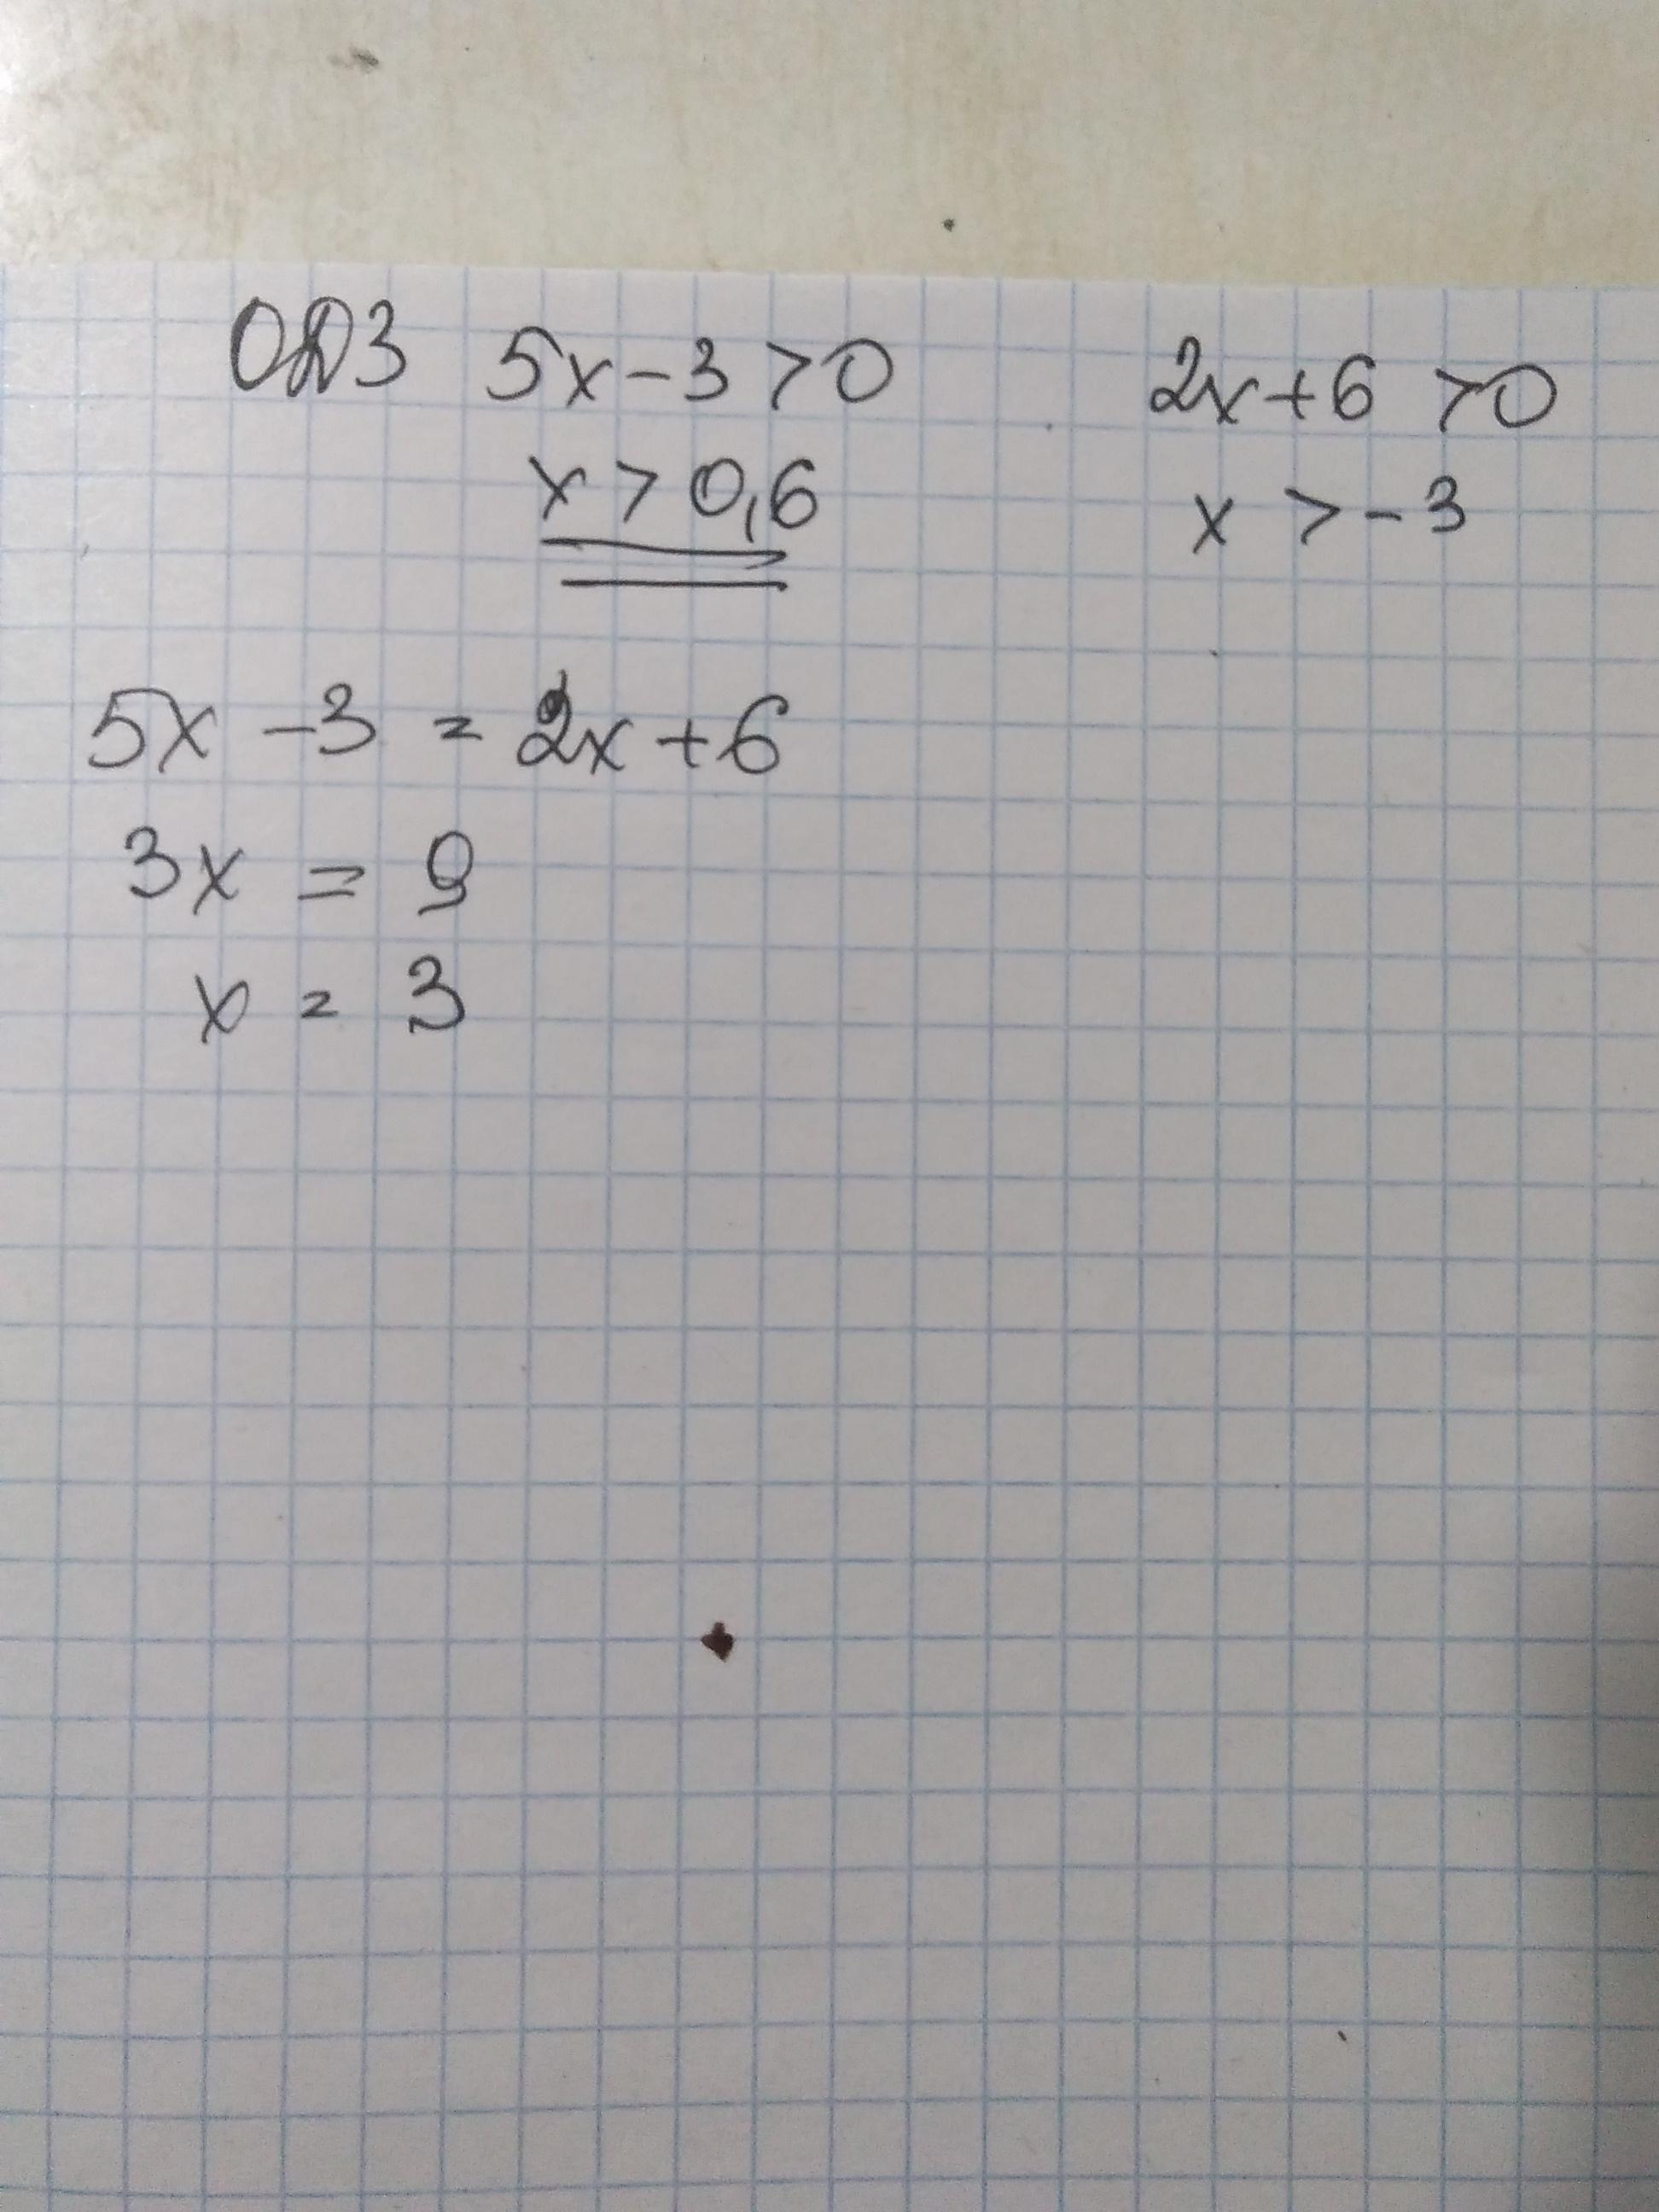 ОДЗ 5x-3>0 2x+6>0
x>0,6 x>-3
5x-3=2x+6
3x=9
x=3